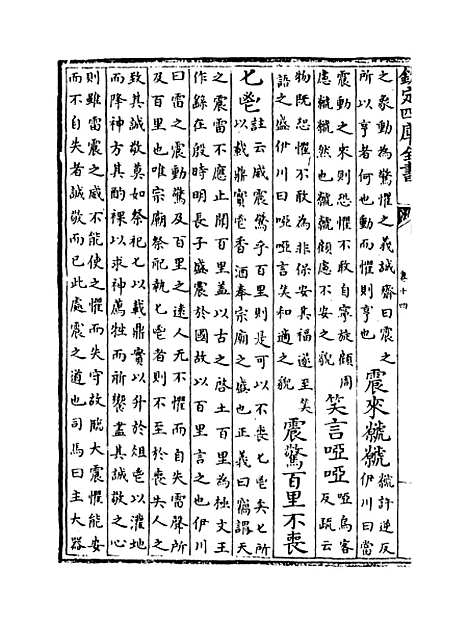 欽定四庫全書
卷十四
之象動為驚懼之義誠齋曰震之
所以亨者何也動而懼則亨也
震來虩虩
虩許逆反
伊川曰當
震動之來則恐懼不敢自寧旋顧周
慮虩虩然也虩虩顧慮不安之貌
笑言啞啞
啞烏客
反疏云
物既恐懼不敢為非保安其福遂至笑
語之盛伊川曰啞啞言笑和適之貌
震驚百里不喪
匕鬯
註云威震驚乎百里則是可以不喪匕鬯矣匕所
以載鼎實鬯香酒奉宗廟之盛也正義曰竊謂天
之震雷不應止聞百里蓋以古之啓土百里為極文王
作繇在殷時明長子威震於國故以百里言之也伊川
曰雷之震動驚及百里之遠人无不懼而自失雷聲所
及百里也唯宗廟祭祀執匕鬯者則不至於喪失人之
致其誠敬莫如祭祀匕以載鼎實以升於俎鬯以灌地
而降神方其酌祼以求神薦牲而祈饗盡其誠敬之心
則雖雷震之威不能使之懼而失守故臨大震懼能安
而不自失者誠敬而已此處震之道也司馬曰主大器